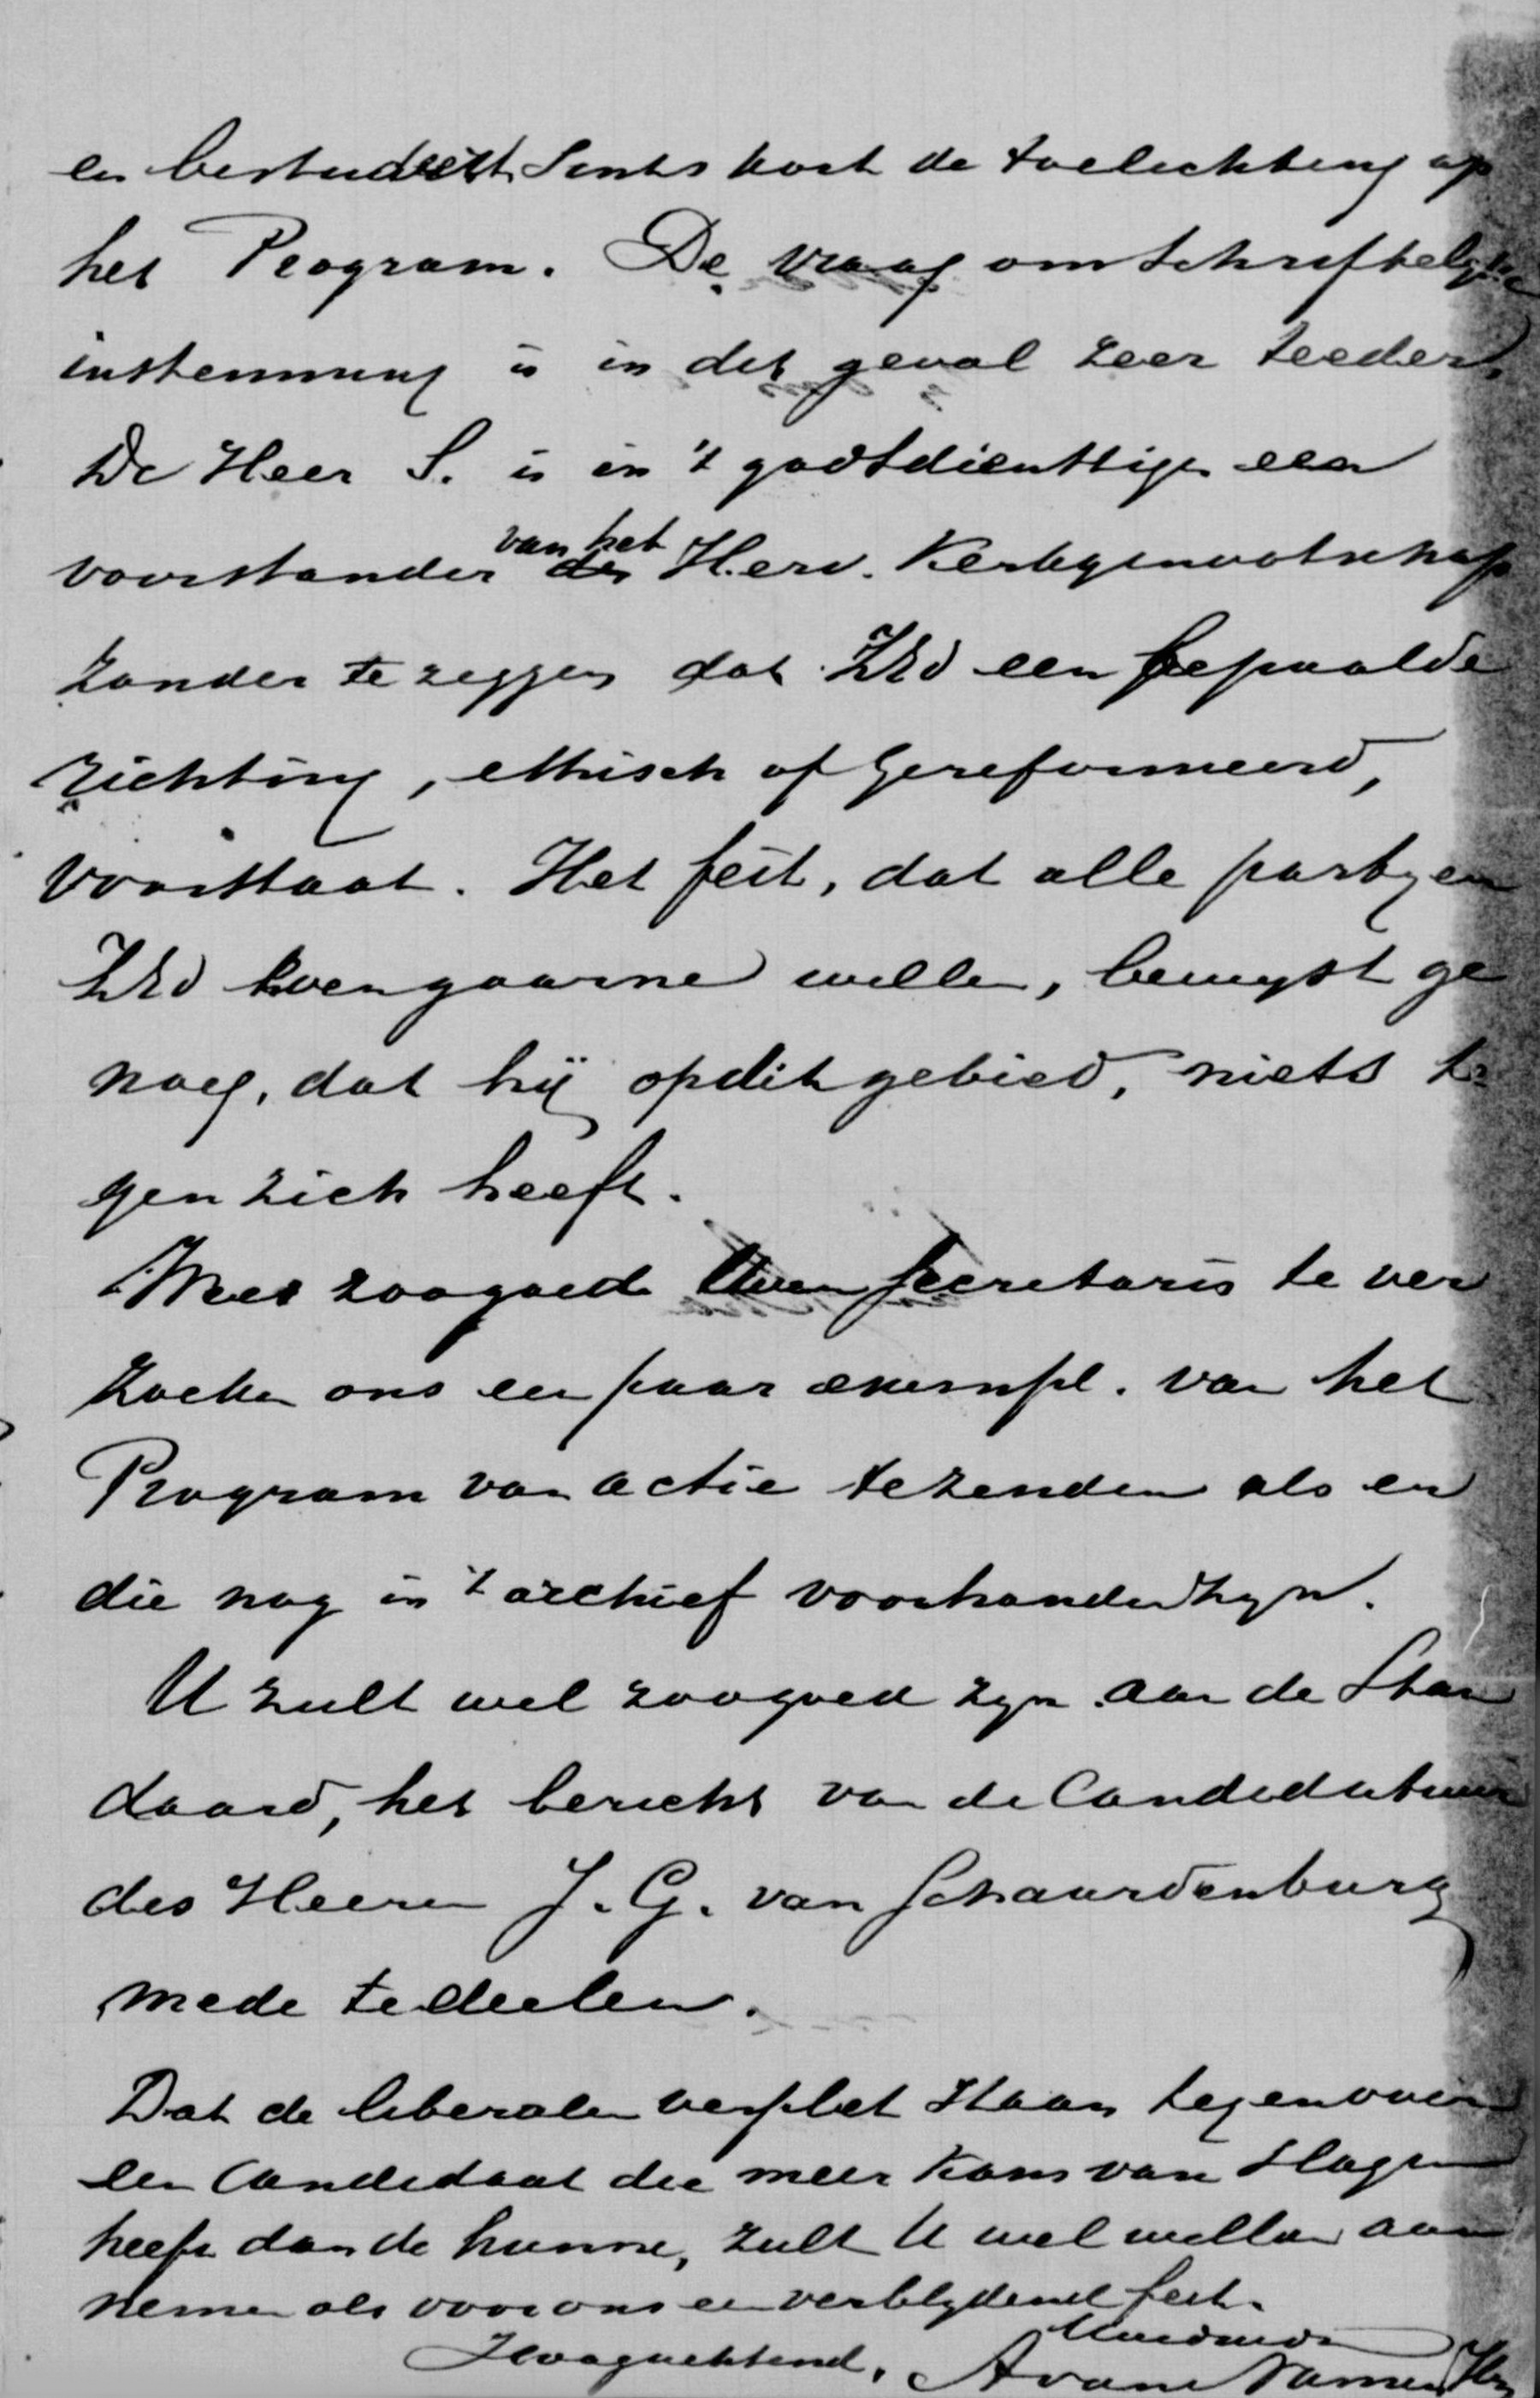 en bestudeert sints kort de toelichting op
het Program. De vraag om schriftelyke
instemming is in dit geval zeer teeder.
De Heer S. is in 't godsdienstige een
voorstander van het Herv. Kerkgenootschap
zonder te zeggen dat ZEd een bepaalde
richting, ethisch of Gereformeerd,
voorstaat. Het feit, dat alle partyen
ZEd even gaarne willen, bewyst ge
noeg, dat hij op dit gebied, niets te
gen zich heeft.
Wees zoo goed Uwen secretaris te ver
zoeken ons een paar exempl. van het
Program van actie te zenden als er
die nog in 't archief voorhanden zyn.
U zult wel zoo goed zyn aan de Stan
daard, het bericht van de Candidatuur
des Heeren J. G. van Schaardenburg
mede te deelen.
Dat de liberalen verplet staan tegenover
een Candidaat die meer kans van slagen
heeft dan de hunne, zult U wel willen aan
nemen als voor ons een verblydend feit.
Hoogachtend,
A van Namen Hz